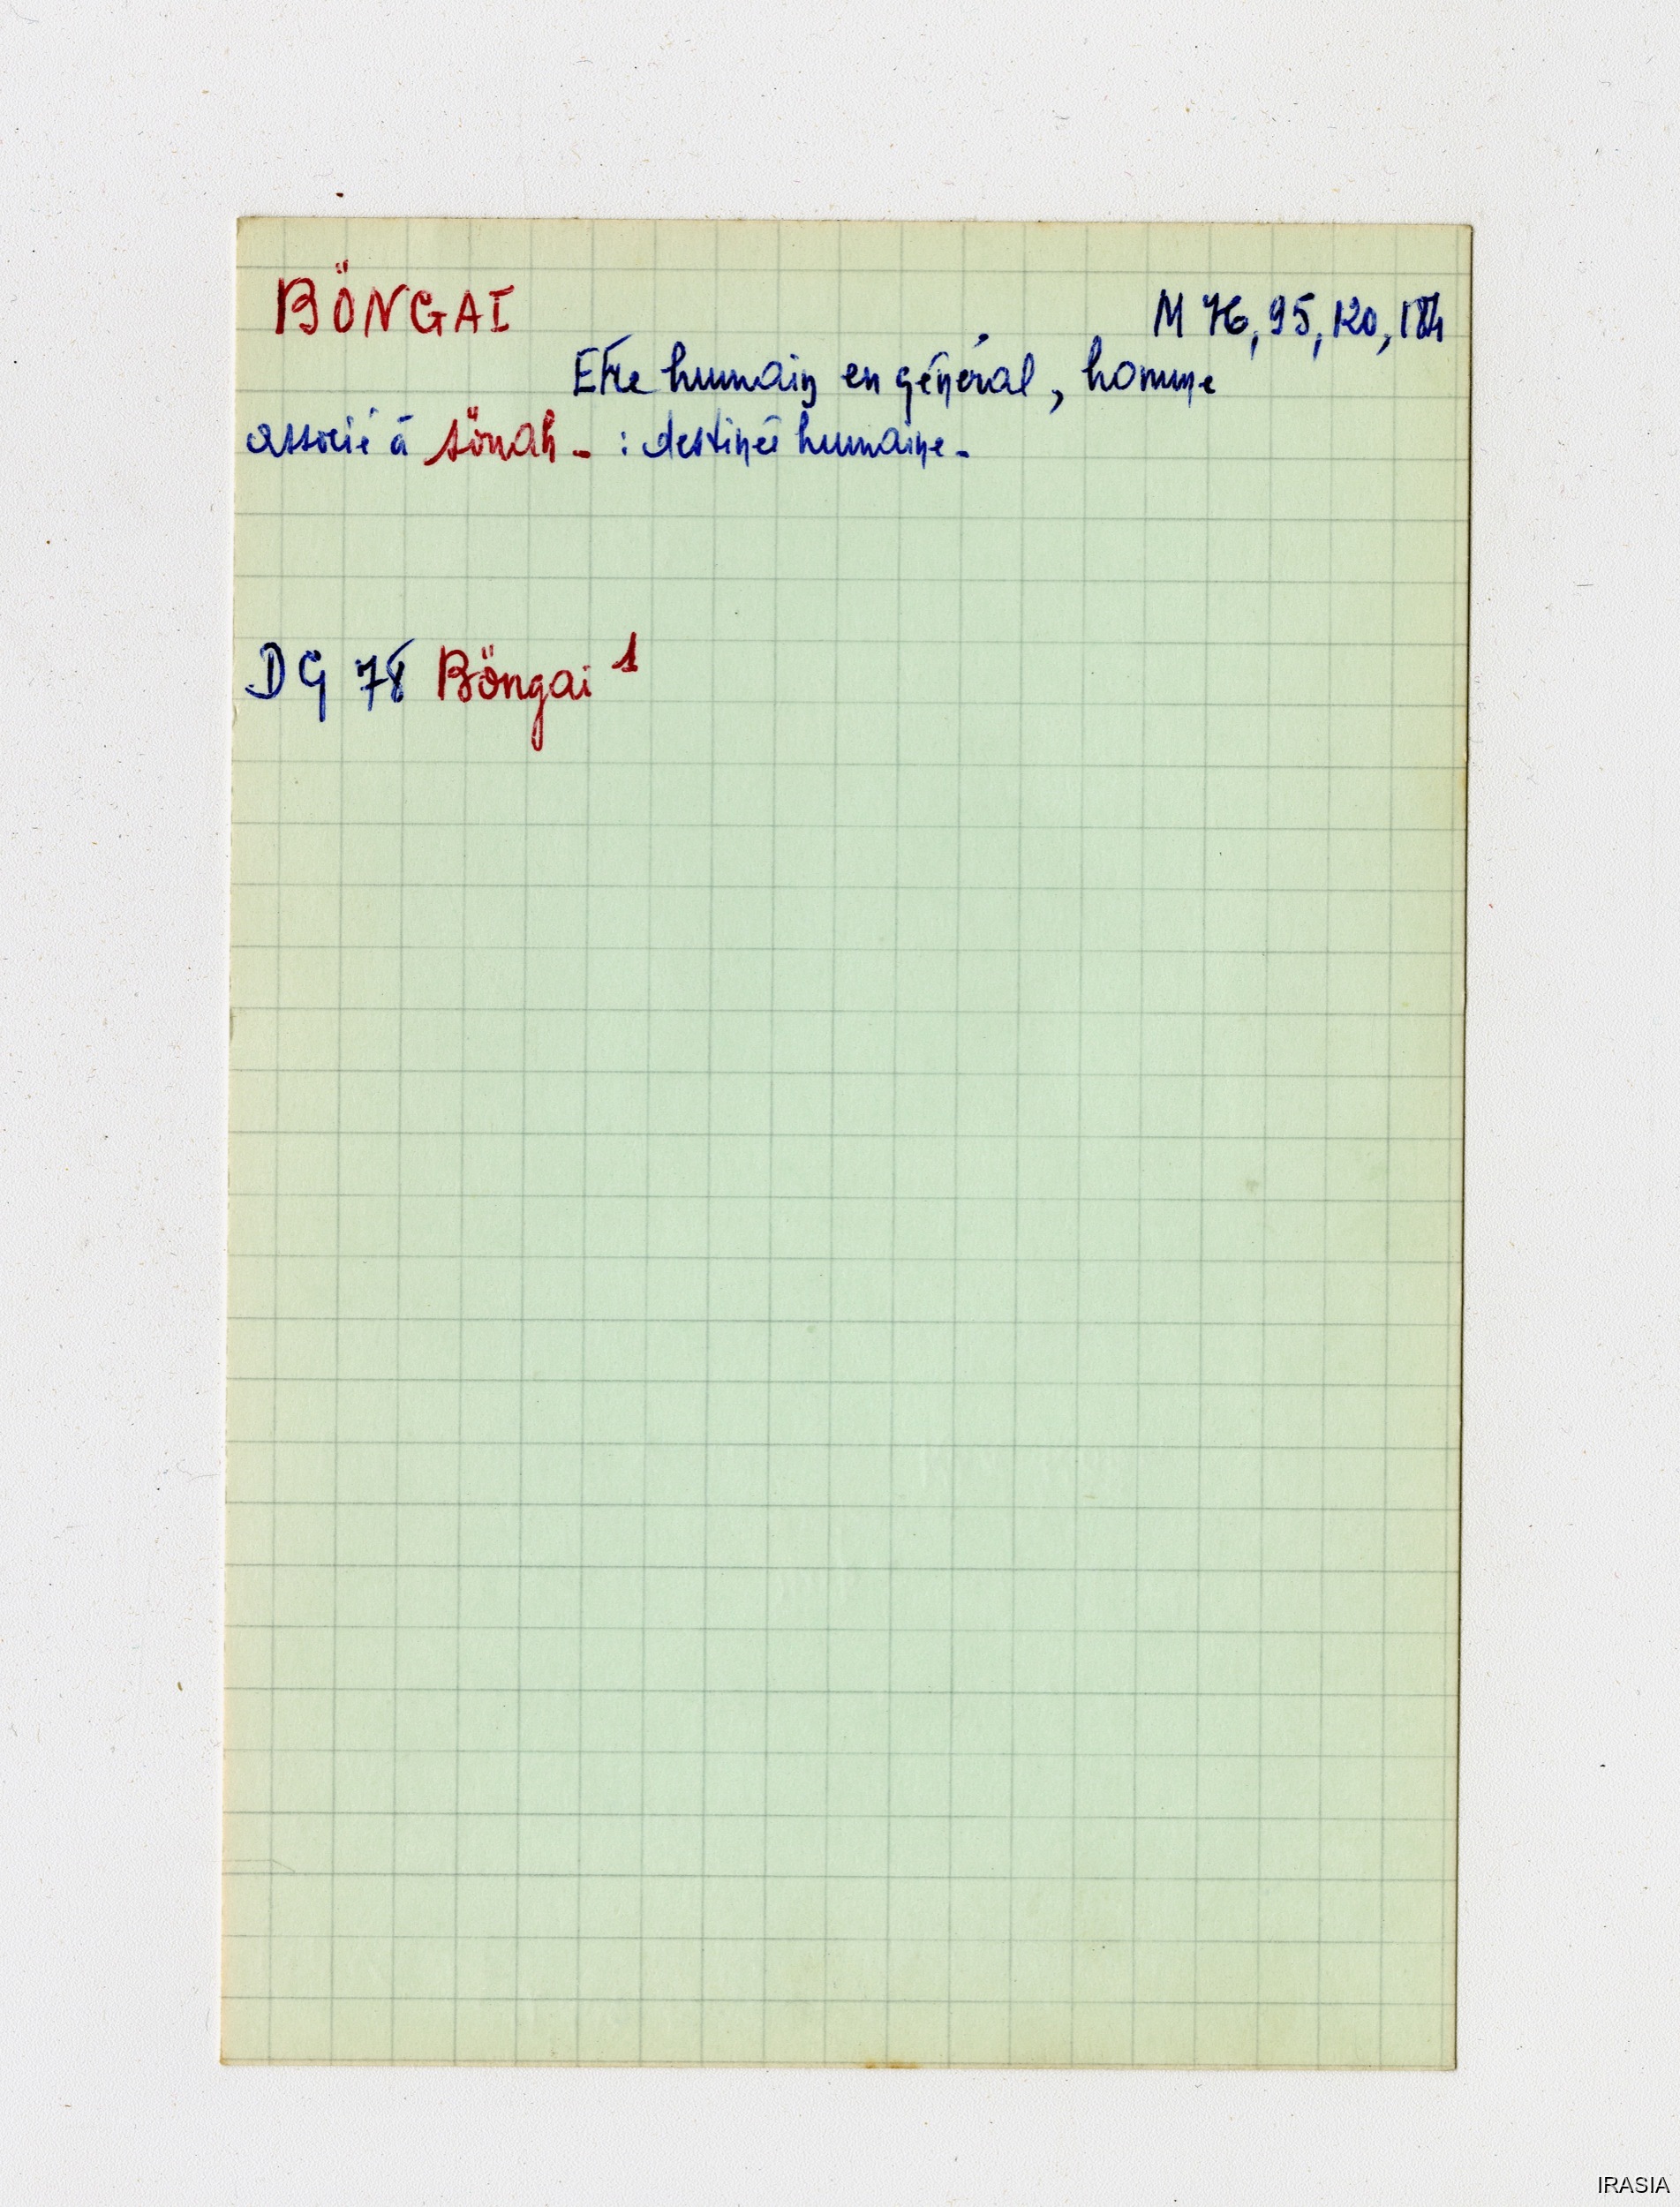 BÖNGAI M 76, 95, 120, 184
Etre humain en général, homme
associé à sönah - : destinée humaine -
DG 78 Böngai 1
IRASIA